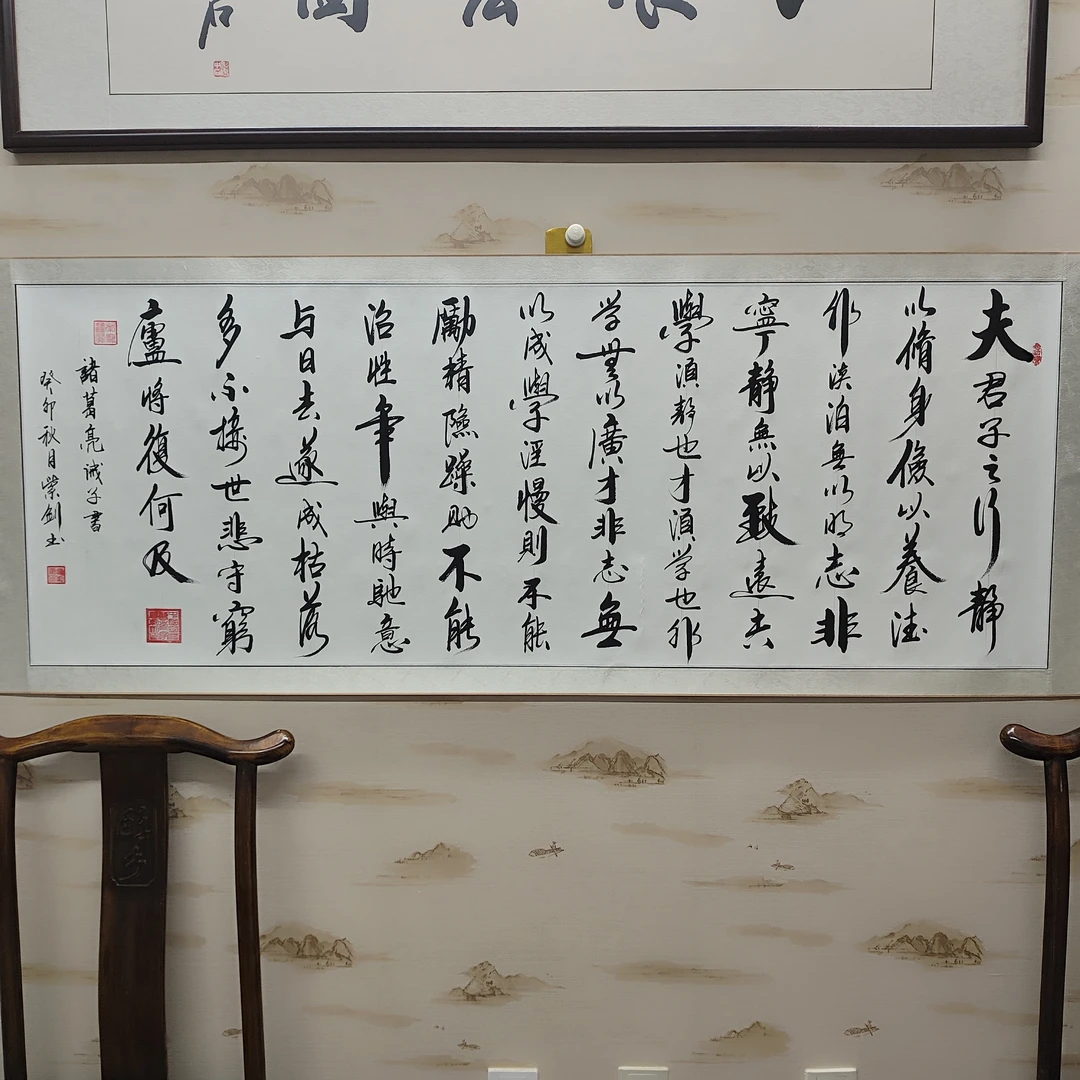 夫君子之行静
以脩身儉以養德
非淡泊無以明志非
寧静無以致遠夫
學須静也才須学也非
学無以廣才非志無
以成學淫慢則不能
勵精險躁則不能
治性年與時馳意
与日去遂成枯落
多不接世悲守窮
廬將復何及
諸葛亮诫子書
癸卯秋月紫劍书